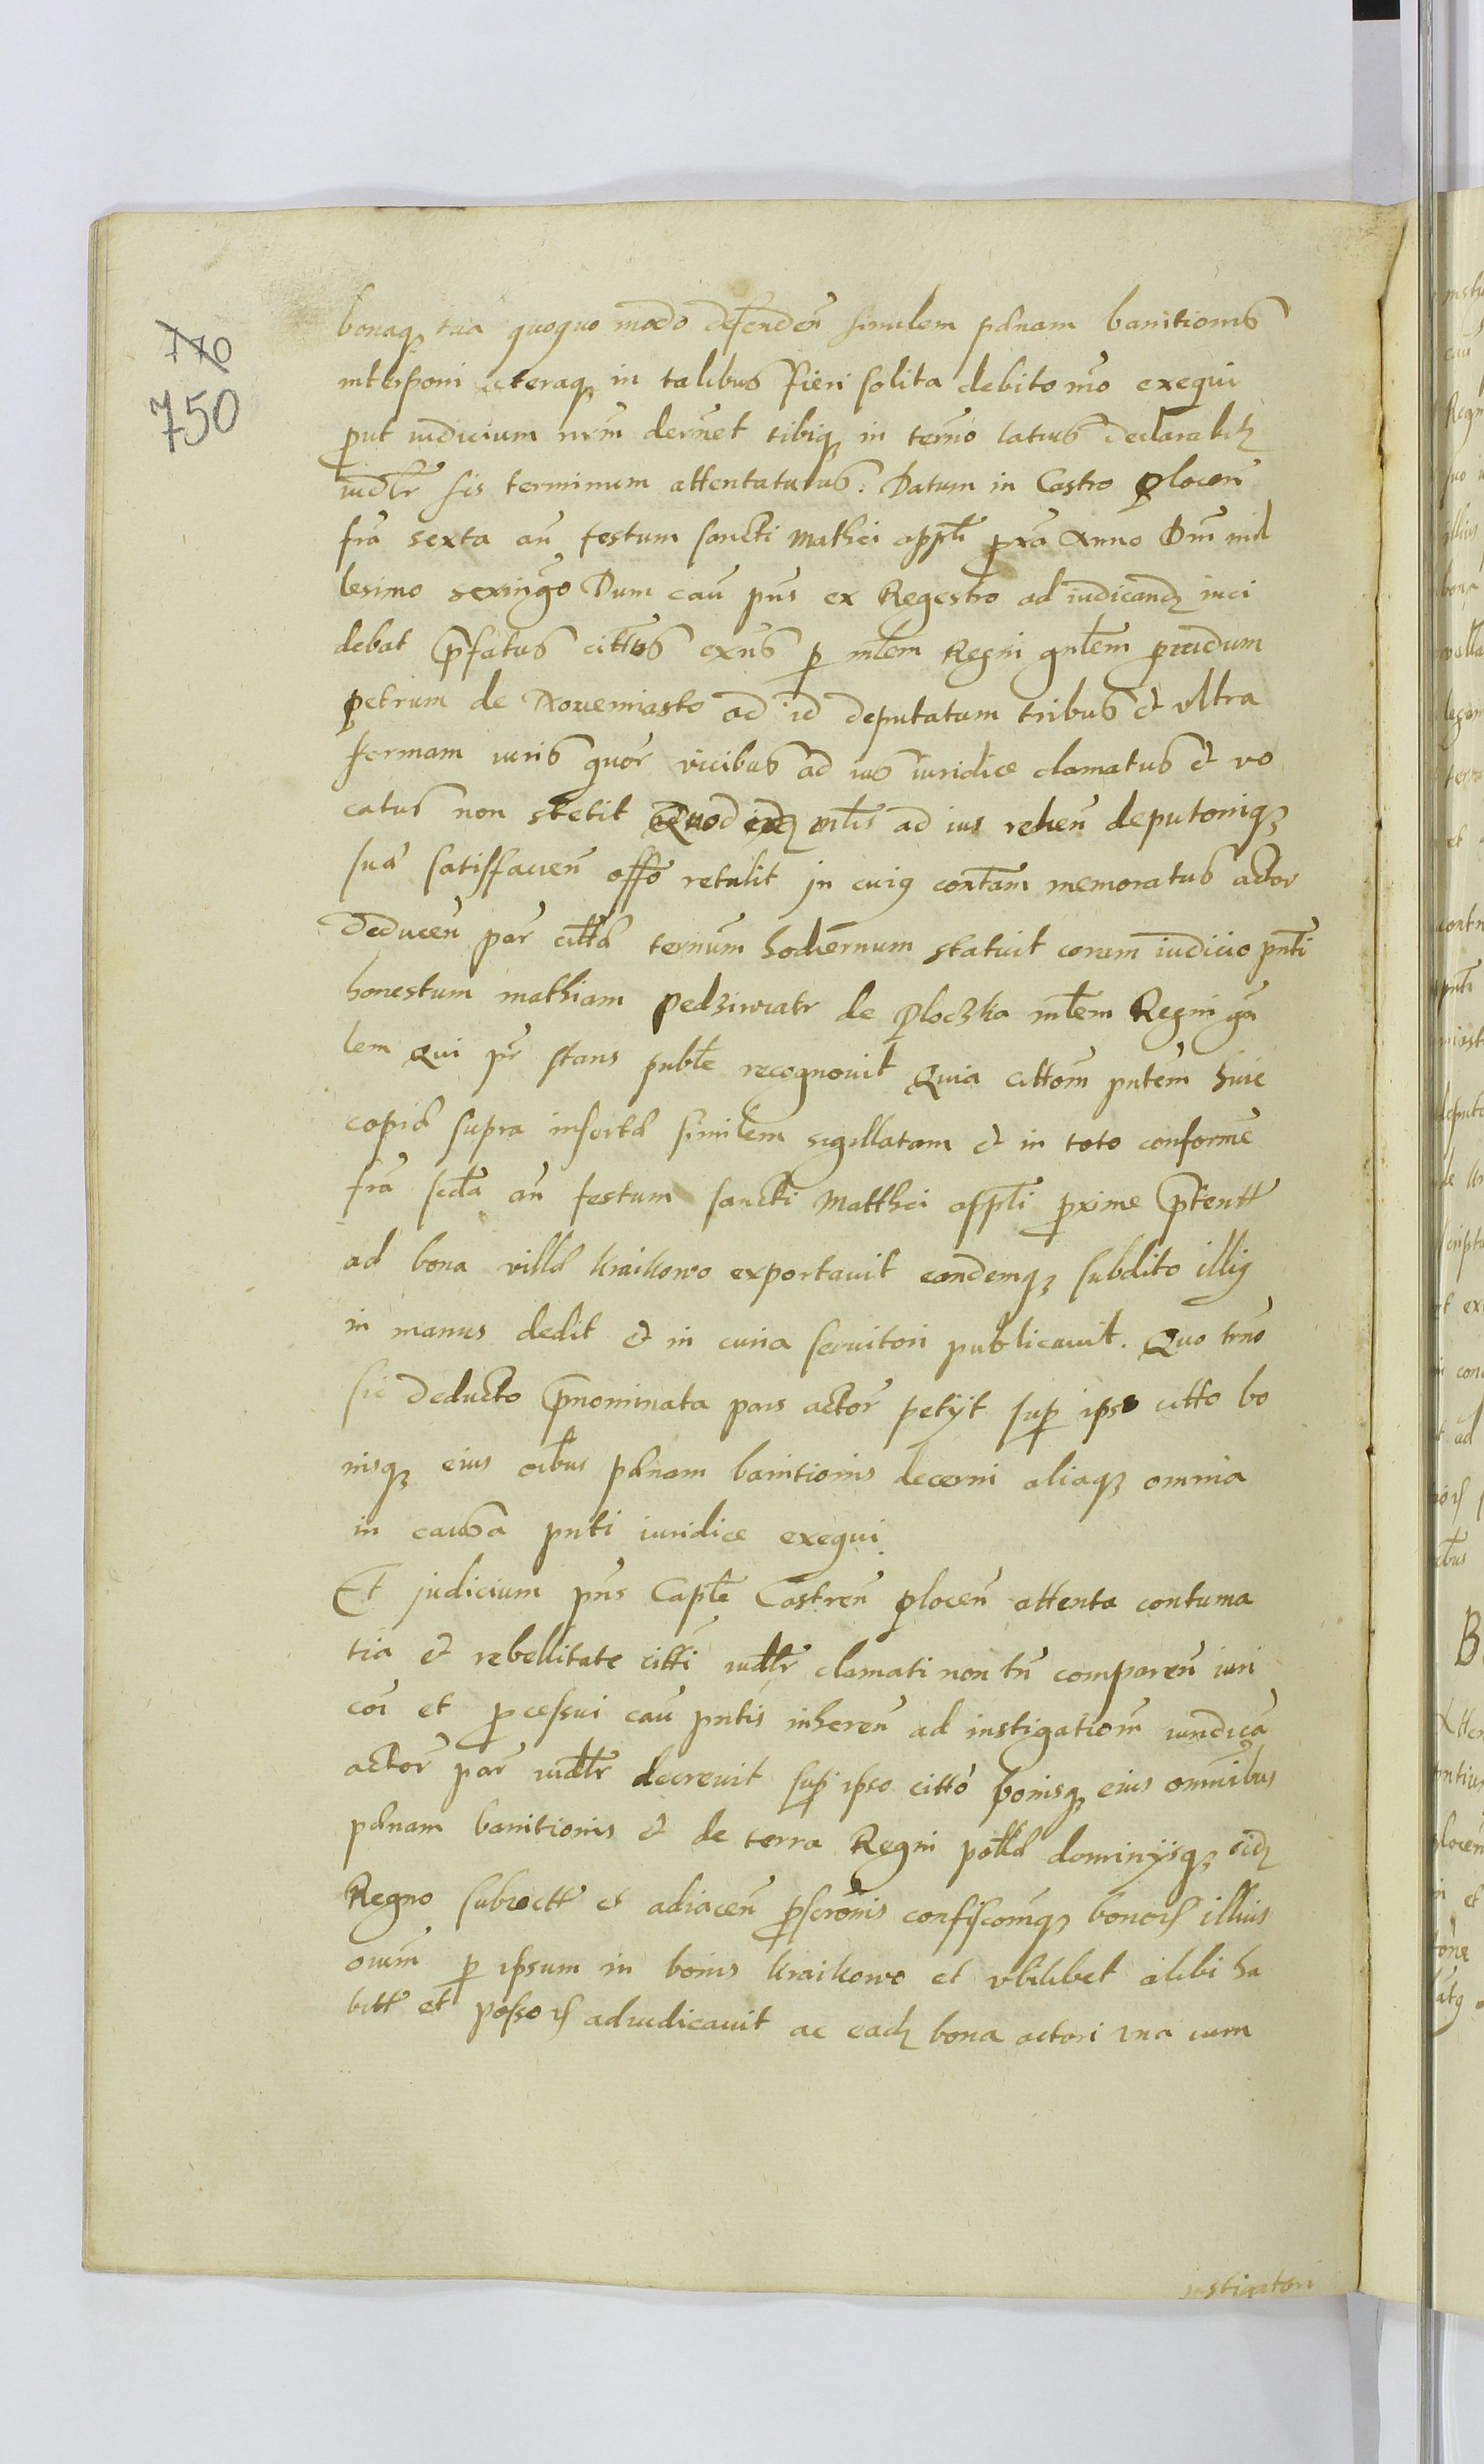 770
750
bonaq3 tua quoquo modo defenden̄ similem pænam banitionis
interponi cæteraq3 in talibus fieri solita debito mō exequi
prout iudicium nr̄m decernet tibiq3 in termō latius declarabit̄
iudlr̄ sis terminum attentaturus. Datum in Castro Plocen̄
fra sexta an̄ festum sancti Mathei appl̄i pxa Anno Dni mil
lesimo sexingō Dum cau pn̄s ex Regestro ad iudicand̄ inci
debat p̄fatus citt̄us exn̄s p ml̄em Regni gnl̄em prou̅idum
petrum de Nouemiasto ad id deputatum tribus et vltra
formam iuris quor̄ vicibus ad ius iuridice clamatus et vo
catus non stetit Quod idq ml̄is ad ius redien̄ deputoniq3
suæ satisfacien̄ offō retulit in cuig cont̄am memoratus actor
deducen̄ par citt̄æ term̄um hodiernum statuit coram iudicio pn̄ti
honestum mathiam Pedziwiatr de Ploczka ml̄em Regni gn̄a
lem Qui pr̄ stans publ̄e recognouit Quia cittōm pn̄tem huic
copiæ supra insertæ similem sigillatam et in toto conformē
fra scd̄a an̄ festum sancti Matthei appl̄i proxime p̄teritt
ad bona villæ Kraikowo exportauit eandemq3 subdito illig
in manus dedit et in curia seruitori publicauit. Quo trn̄o
sic deducto p̄nominata pars actor̄ petijt sup ipso citto bo
nisq3 eius oībus pænam banitionis decerni aliaq3 omnia
in causa pn̄ti iuridice exequi.
Et judicium pn̄s Capl̄e Castren̄ plocen̄ attenta contuma
tia et rebellitate citt̄i iudlr̄ clamati non tn̄ comparen̄ iuri
coī et processui cau pn̄tis inheren̄ ad instigationem iuridicā
actor̄ par iudlr̄ decreuit sup ipso citto bonisq3 eius omnibus
pænam banitionis et de terra Regni pol̄læ dominijsq3 eid̄
Regno subiectt et adiacen̄ p̄scrōnis confiscomq3 bonor̄ illius
oium̄ p ipsum in bonis Kraikowo et vbilibet alibi ha
bitt et possor̄ adiudicauit ac ead̄ bona actori vna cum
instigatori